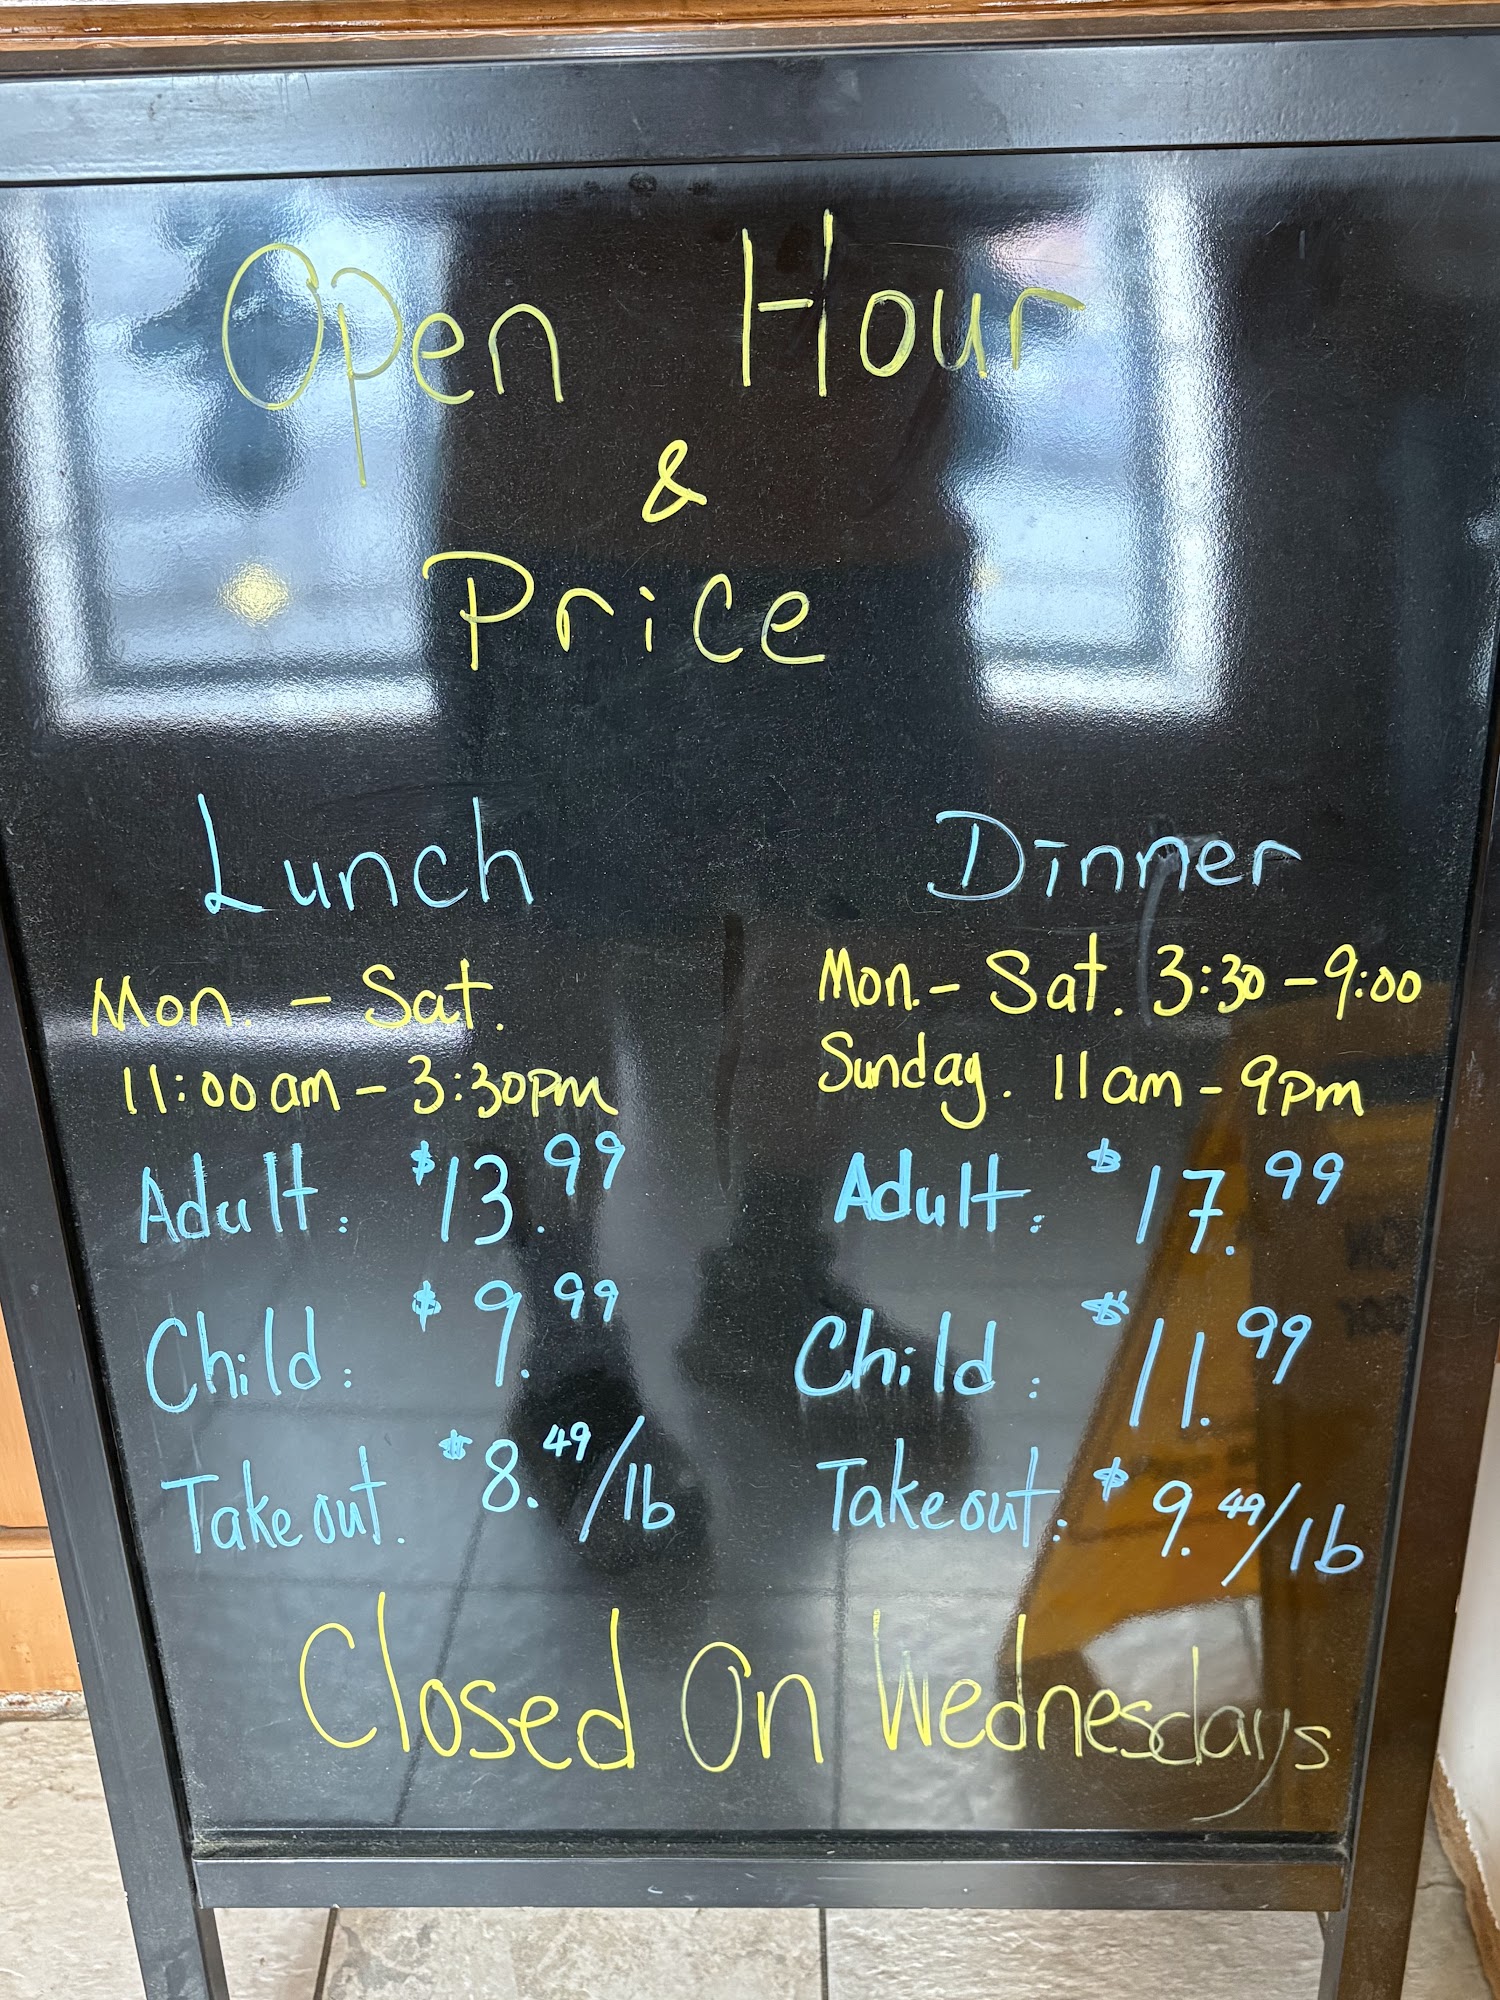 Open Hour
&
Price
Lunch
Mon. - Sat.
11:00am - 3:30pm
Adult: $13.99
Child: $9.99
Takeout. $8.49/lb
Dinner
Mon. - Sat. 3:30 - 9:00
Sunday. 11am - 9pm
Adult: $17.99
Child: $11.99
Takeout: $9.49/lb
Closed On Wednesdays